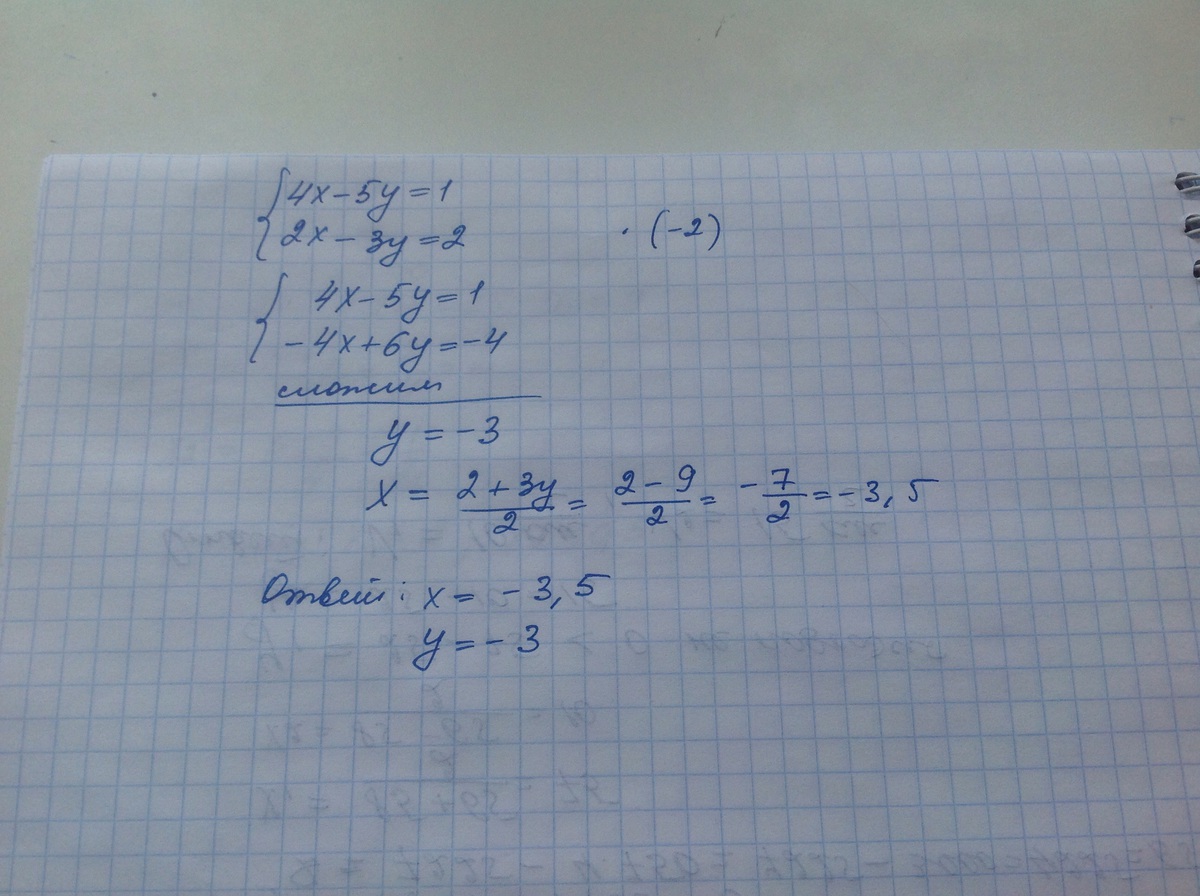 4x-5y=1
2x-3y=2 · (-2)
4x-5y=1
-4x+6y=-4
сложим
y = -3
x = (2+3y)/2 = (2-9)/2 = -7/2 = -3,5
Ответ: x = -3,5
y = -3